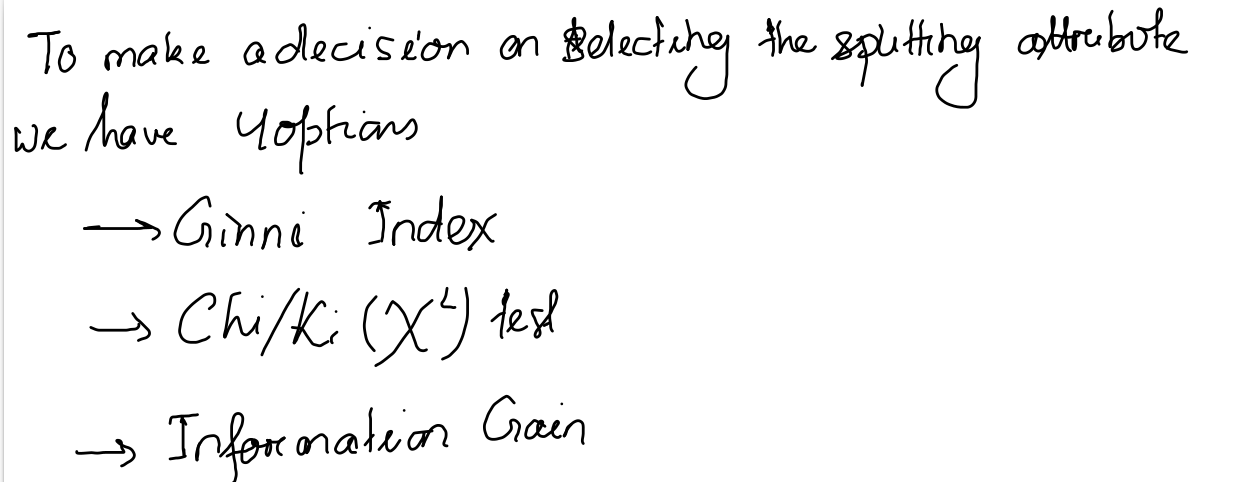 To make a decision on selecting the splitting attribute
we have 4 options
→ Ginni Index
→ Chi/Ki (χ²) test
→ Information Gain